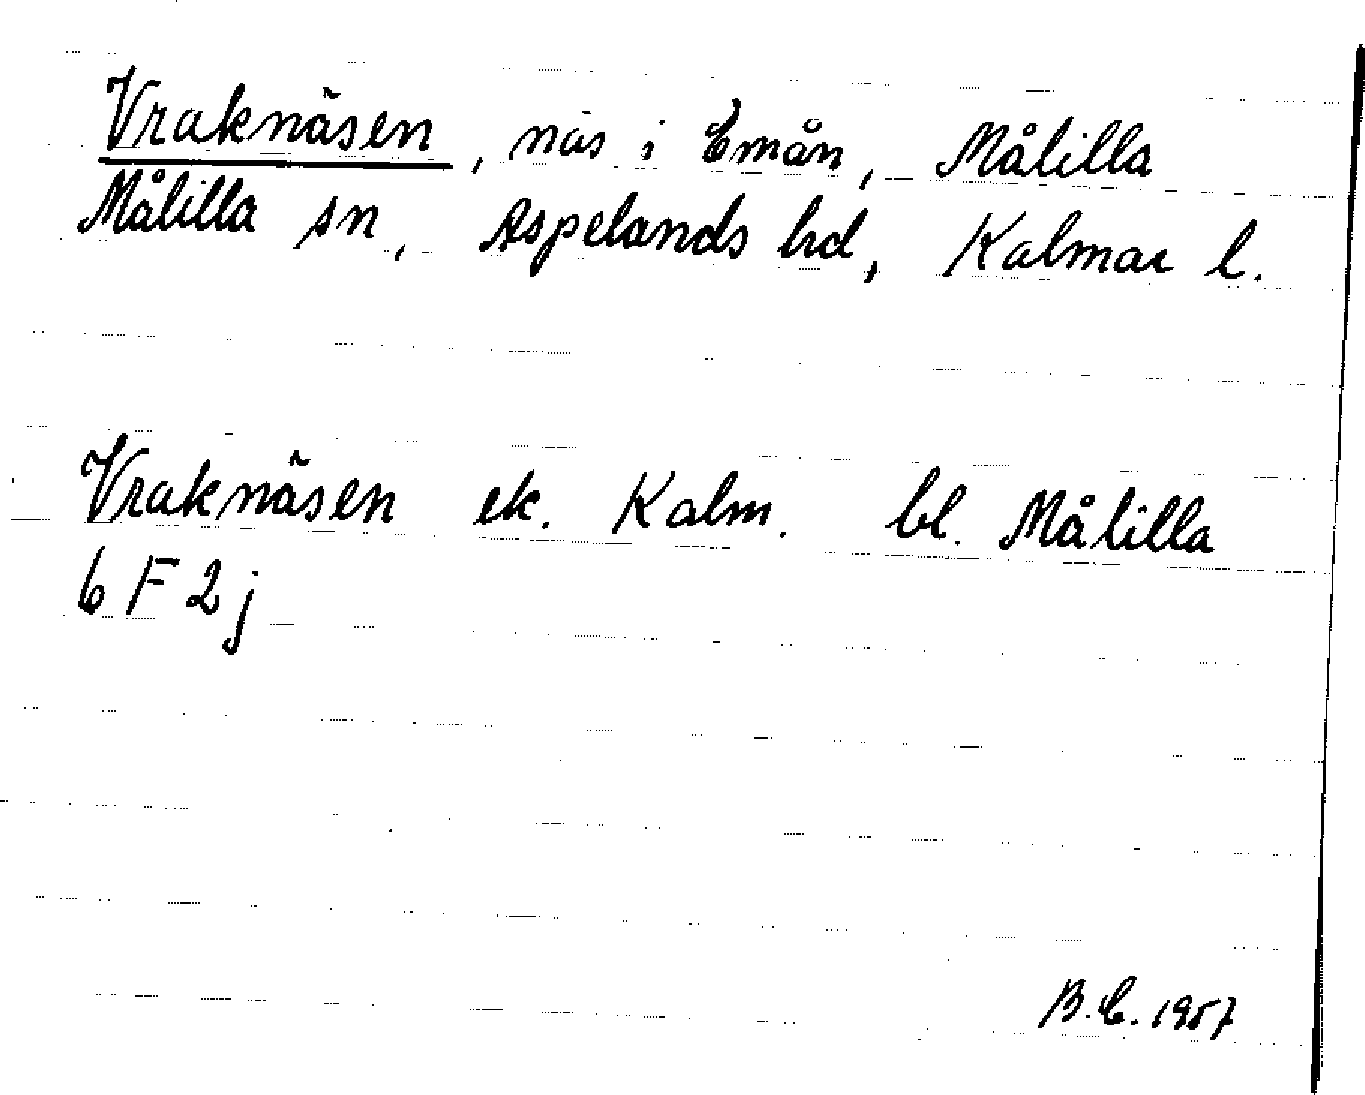 Vraknäsen, näs i Emån, Målilla
Målilla sn, Aspelands hd, Kalmar l.
Vraknäsen ek. Kalm. bl. Målilla
6 F 2 j
B.E. 1957